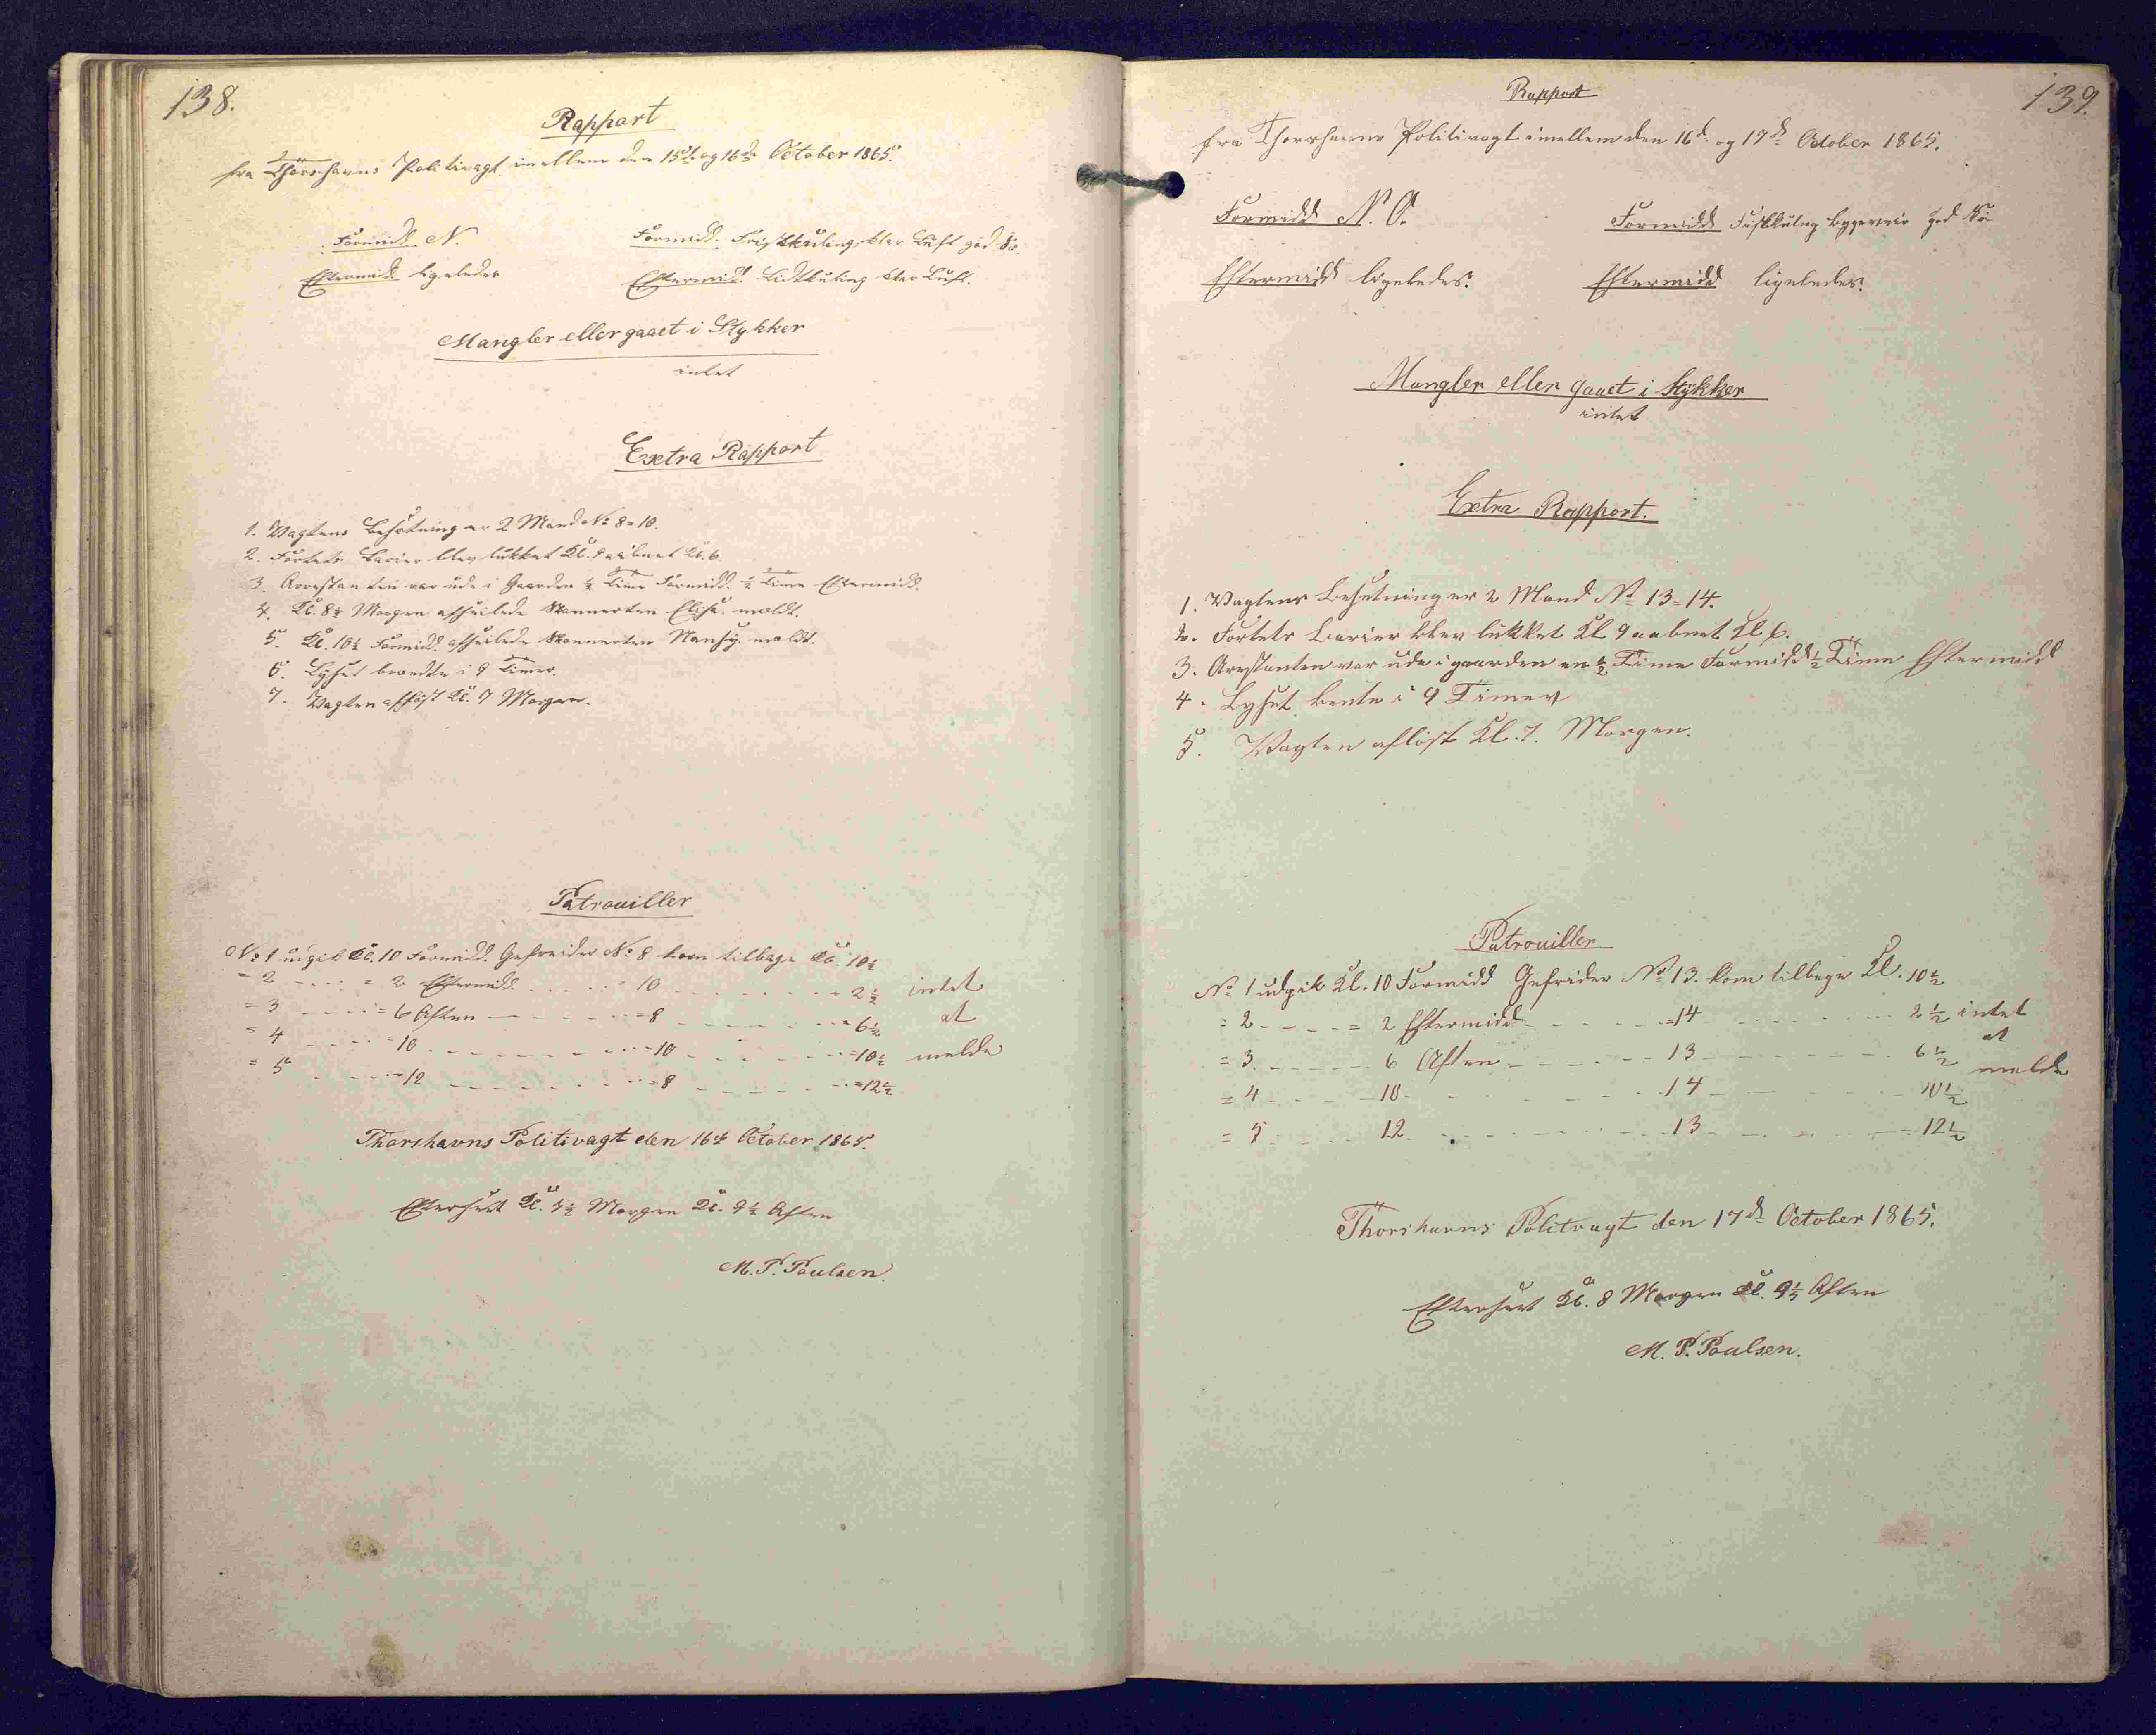 138.
Rapport
fra Thorshavns Politivagt imellem den 15de og 16de October 1865.
Formidd. N.
Formidd. Friskkuling, klar Luft god Sø.
Eftermidd. ligeledes
Eftermidd. Lidtkuling klar Luft.
Mangler eller gaaet i Stykker
intet
Extra Rapport
1. Vagtens Besætning er 2 Mand No 8 = 10.
2. Fortets Barier blev lukket Kl. 9 aabnet Kl. 6.
3. Arrestanten var ude i Gaarden ½ Time Formidd. ½ Time Eftermidd.
4. Kl. 8½ Morgen afseilede Skonnerten Elise. meldt.
5. Kl. 10½ Formidd. afseilede Skonnerten Nancy meldt.
6. Lyset brændte i 9 Timer.
7. Vagten afløst Kl. 7 Morgen.
Patrouiller
No 1 udgik Kl. 10 Formidd. Gefreider No 8 kom tilbage Kl. 10½
= 2 - - - = 2 Eftermidd. - - - = 10 - - - = 2½ intet
= 3 - - - = 6 Aften - - - = 8 - - - = 6½ at
= 4 - - - = 10 - - - = 10 - - - = 10½ melde
= 5 - - - = 12 - - - = 8 - - - = 12½
Thorshavns Politivagt den 16de October 1865.
Efterseet Kl. 7½ Morgen Kl. 9½ Aften
M. P. Poulsen.
139.
Rapport
fra Thorshavns Politivagt imellem den 16de og 17de October 1865.
Formidd N. O.
Formidd Friskkuling Bygeveir god Sø
Eftermidd ligeledes.
Eftermidd ligeledes.
Mangler eller gaaet i Stykker
intet
Extra Rapport.
1. Vagtens Besetning er 2 Mand No 13 = 14.
2. Fortets Barier blev lukket Kl 9 aabnet Kl 6.
3. Arestanten var ude i gaarden en ½ Time Formidd ½ Time Eftermidd
4. Lyset brente i 9 Timer
5. Vagten afløst Kl. 7. Morgen.
Patrouiller
No 1 udgik Kl. 10 Formidd Gefrider No 13. kom tilbage Kl. 10½
= 2 - - - = 2 Eftermidd - - - = 14 - - - 2½ intet
= 3 - - - 6 Aften - - - 13 - - - 6½ at
= 4 - - - 10 - - - 14 - - - 10½ melde
= 5 - - - 12 - - - 13 - - - 12½
Thorshavns Politvagt den 17de October 1865.
Efterseet Kl. 8 Morgen Kl. 9½ Aften
M. P. Poulsen.